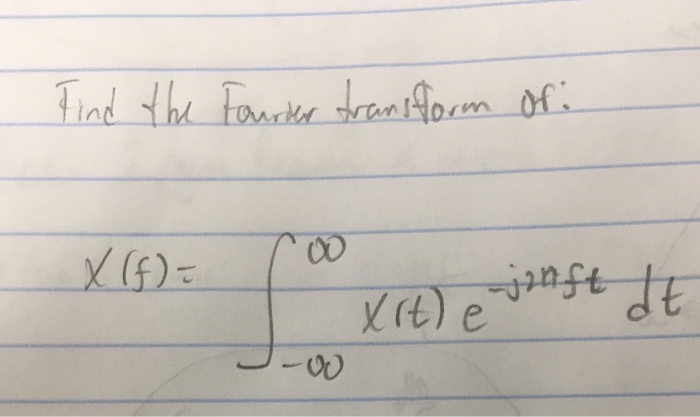 Find the Fourier transform of:
X(f) = ∫_{-∞}^{∞} x(t) e^{-j2πft} dt